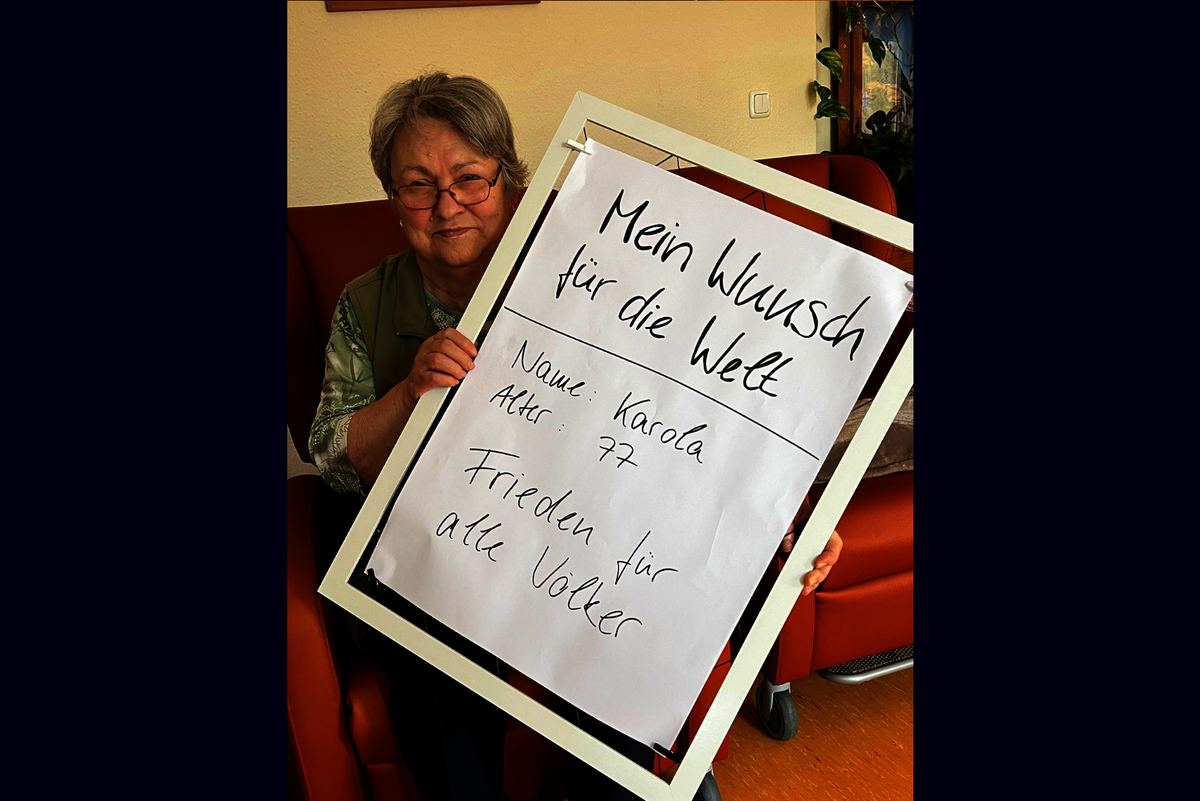 Mein Wunsch
für die Welt
Name: Karola
Alter: 77
Frieden für
alle Völker